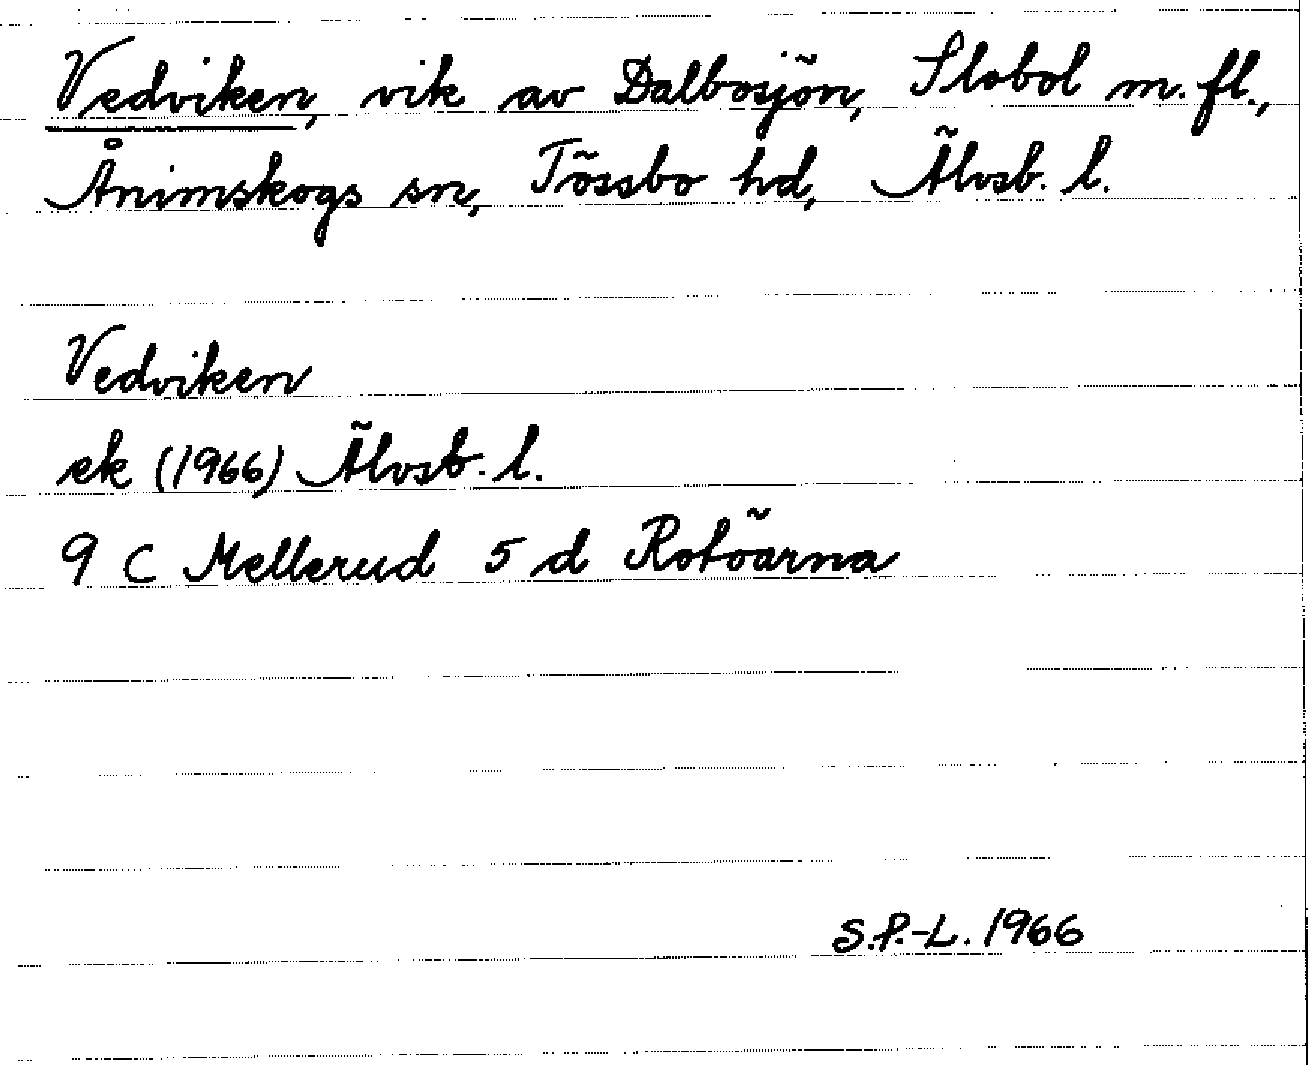 Vedviken, vik av Dalbosjön, Slobol m. fl.,
Ånimskogs sn, Tössbo hd, Älvsb. l.
Vedviken
ek (1966) Älvsb. l.
9 C Mellerud 5 d Rotöarna
S.P.-L. 1966